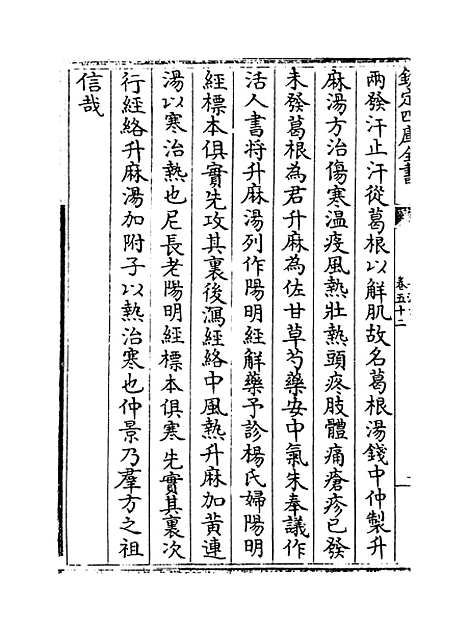 欽定四庫全書
卷五十二
兩發汗止汗從葛根以解肌故名葛根湯錢中仲製升
麻湯方治傷寒温疫風熱壯熱頭疼肢體痛瘡疹已發
未發葛根為君升麻為佐甘草芍藥安中氣朱奉議作
活人書将升麻湯列作陽明經解藥予診楊氏婦陽明
經標本俱實先攻其裏後瀉經絡中風熱升麻加黄連
湯以寒治熱也尼長老陽明經標本俱寒先實其裏次
行經絡升麻湯加附子以熱治寒也仲景乃羣方之祖
信哉